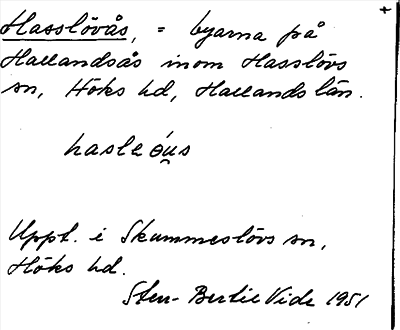 Hasslövås, = byarna på
Hallandsås inom Hasslövs
sn, Höks hd, Hallands län.
hasleóu̯s
Uppt. i Skummeslövs sn,
Höks hd.
Sten-Bertil Vide 1951